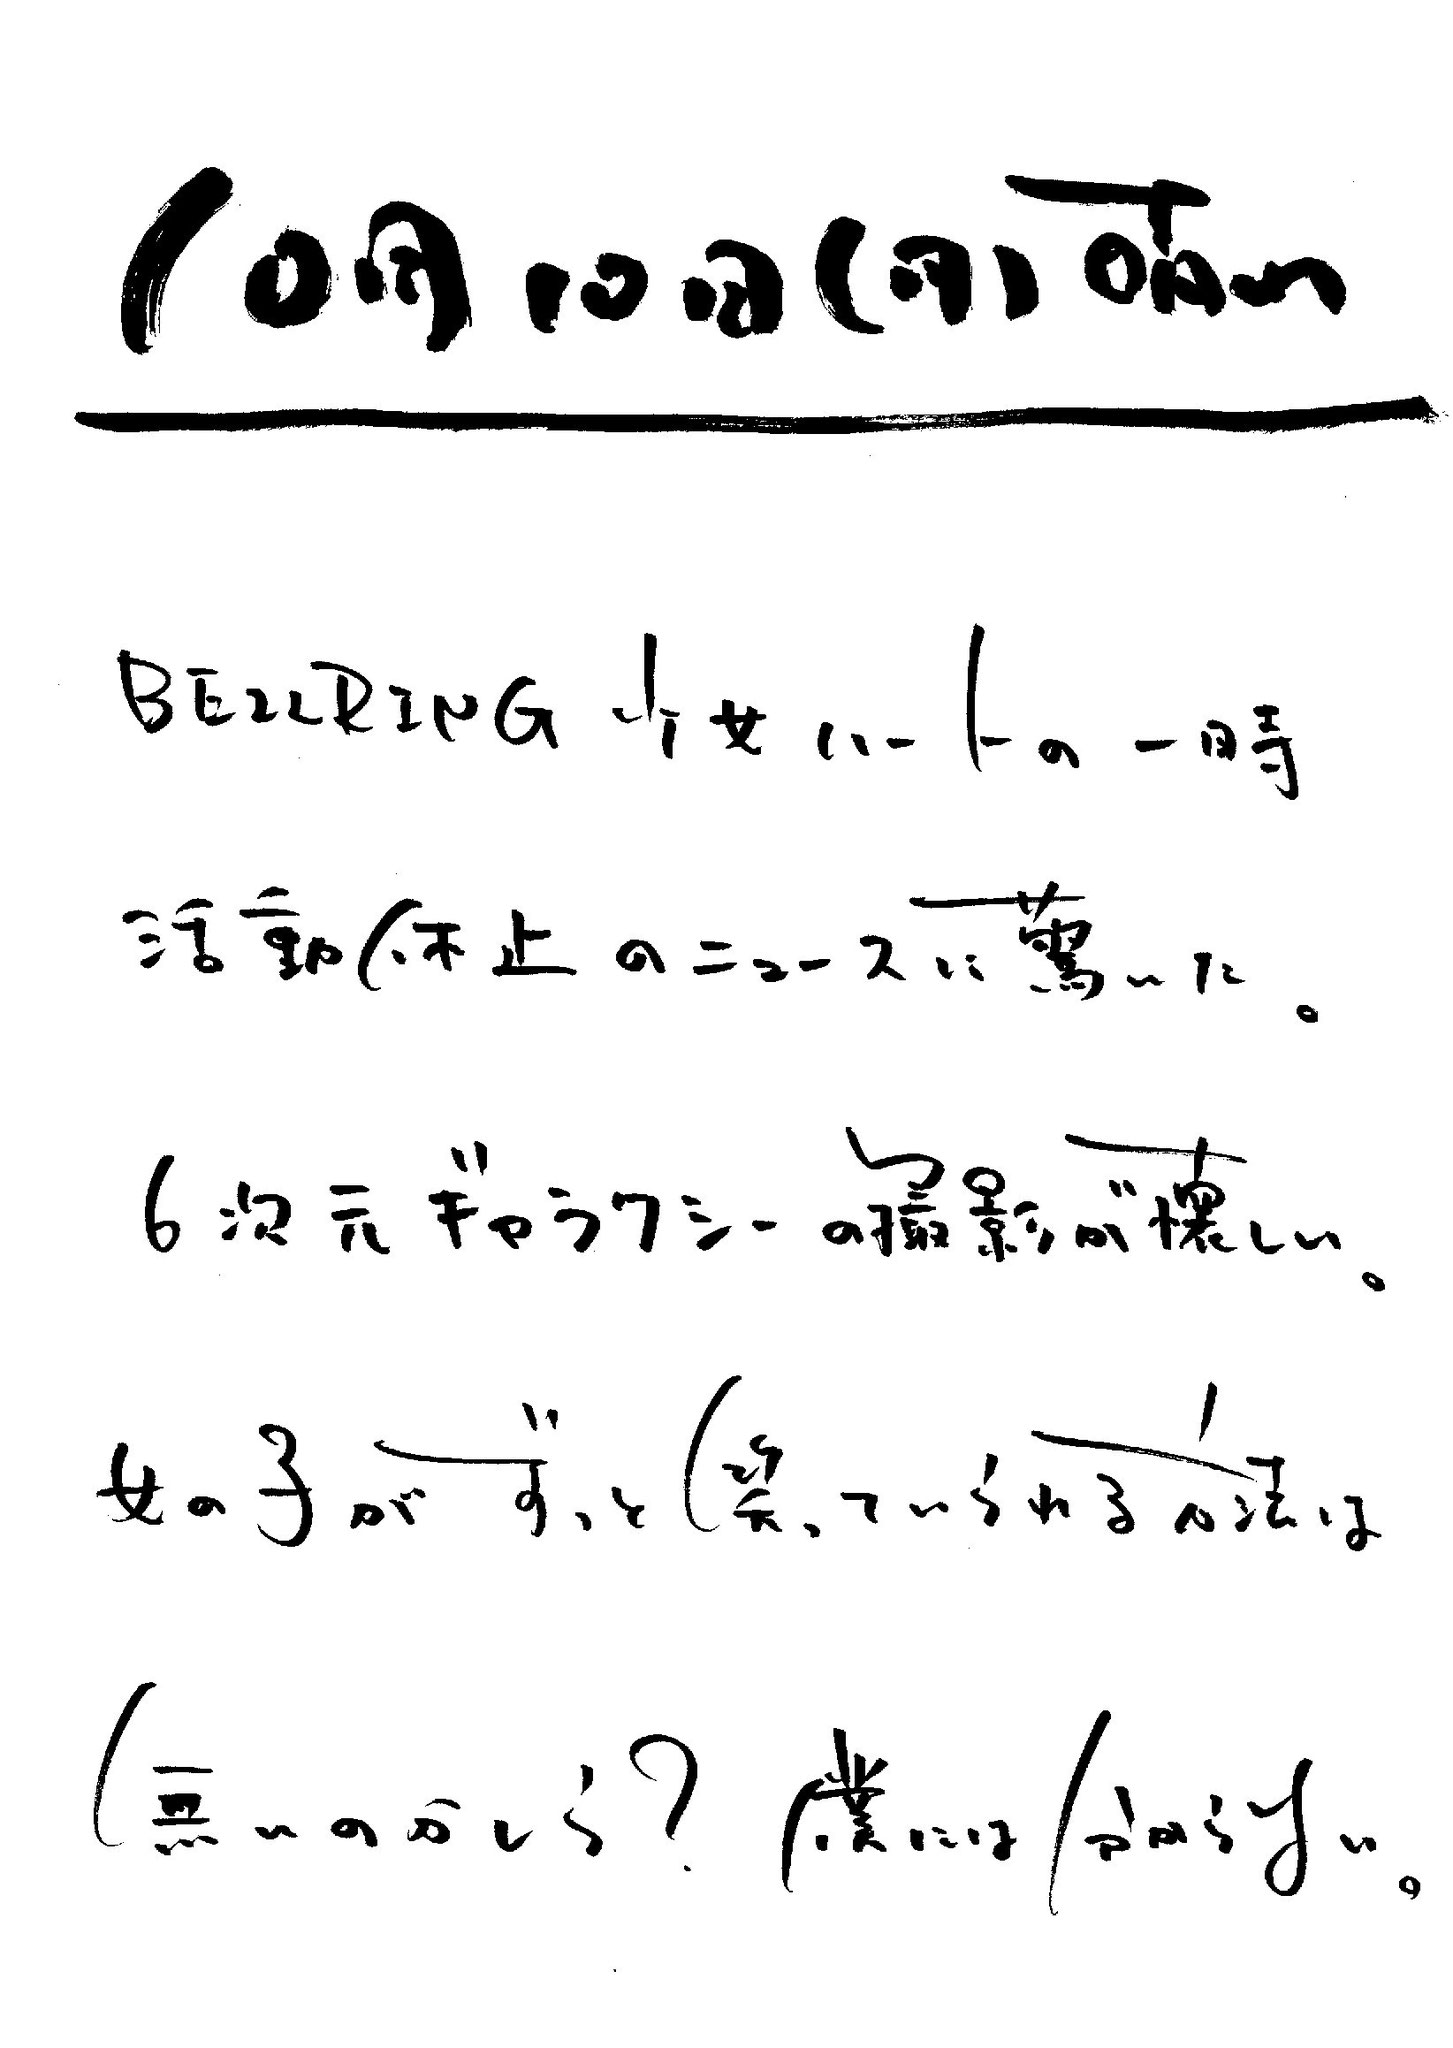 10月10日(月)雨
BELLRING少女ハートの一時
活動休止のニュースに驚いた。
6次元ギャラクシーの撮影が懐しい。
女の子がずっと笑っていられる方法は
無いのかしら?僕には分からない。